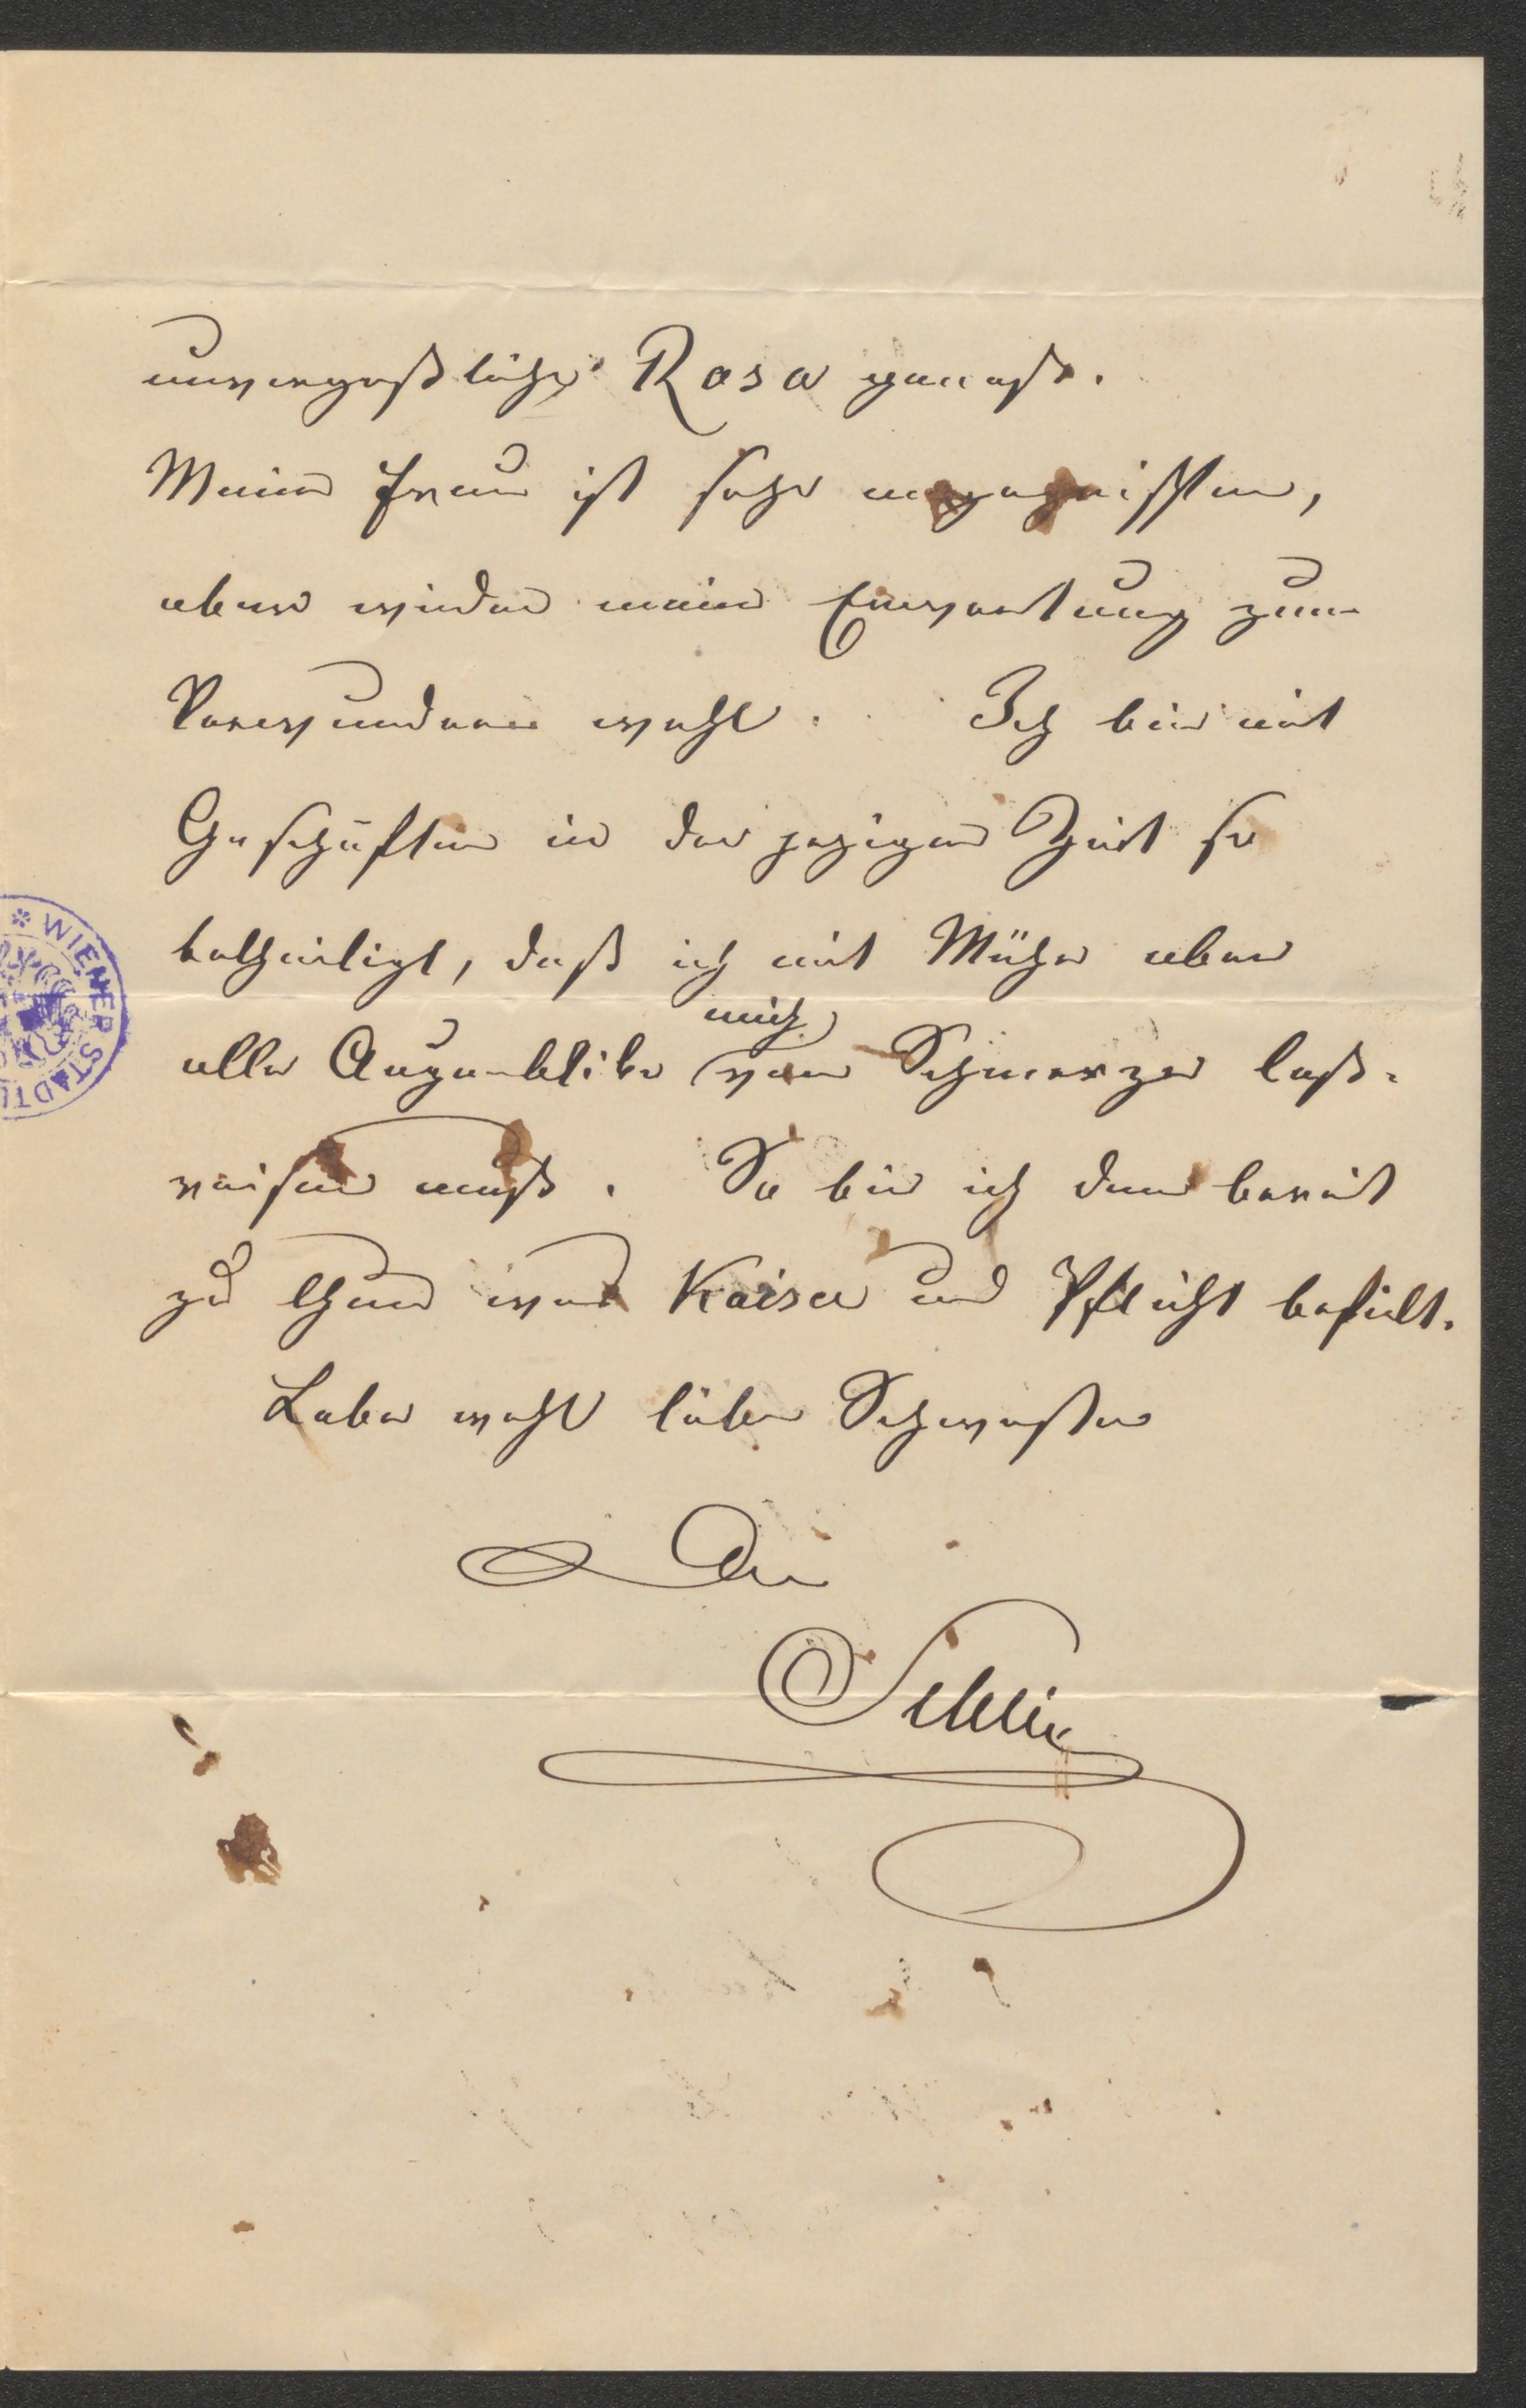 unvergeßliche Rosa genaß.
Meine Frau ist sehr angegriffen,
aber wieder meine Erwartung zum
Verwundern wohl. Ich bin mit
Geschäften in der jezigen Zeit so
betheiligt, daß ich mit Mühe aber
alle Augenblike mich vom Schmerze los-
reißen muß. So bin ich denn bereit
zu thun was Kaiser und Pflicht befielt.
Lebe wohl liebe Schwester
WIENER STADT